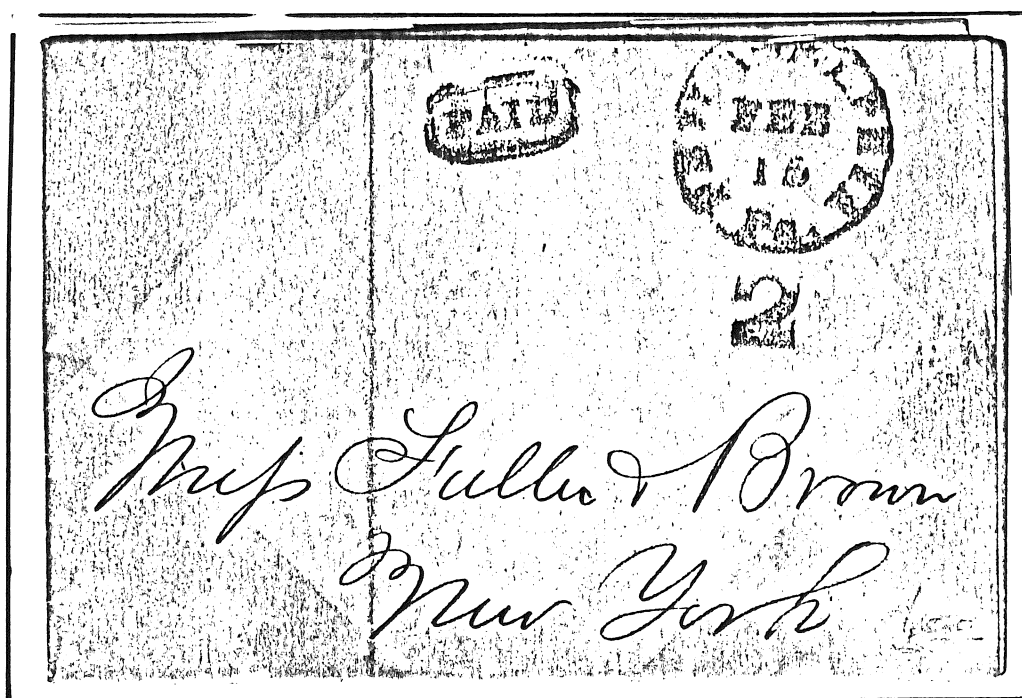 PAID
FEB
15
Pa.
2
Mess Fuller & Brown
New York